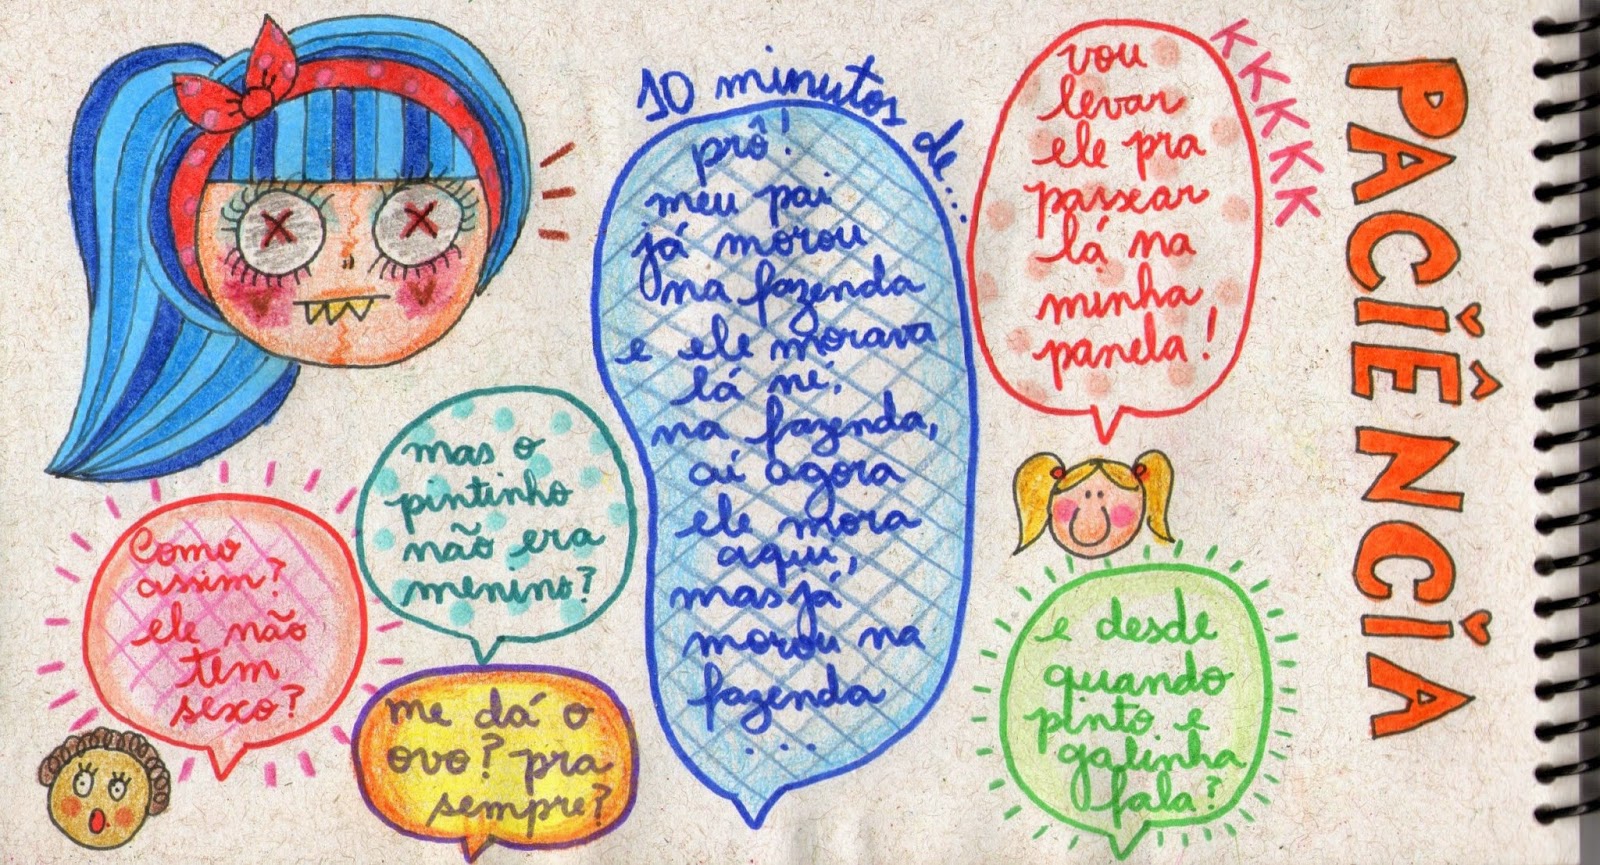 Como
assim?
ele não
tem
sexo?
mas o
pintinho
não era
menino?
me dá o
ovo? pra
sempre?
10 minutos de...
prô!
meu pai
já morou
na fazenda
e ele morava
lá né,
na fazenda,
aí agora
ele mora
aqui,
mas já
morou na
fazenda
...
vou
levar
ele pra
passear
lá na
minha
panela!
KKKKK
e desde
quando
pinto e
galinha
fala?
PACIÊNCIA